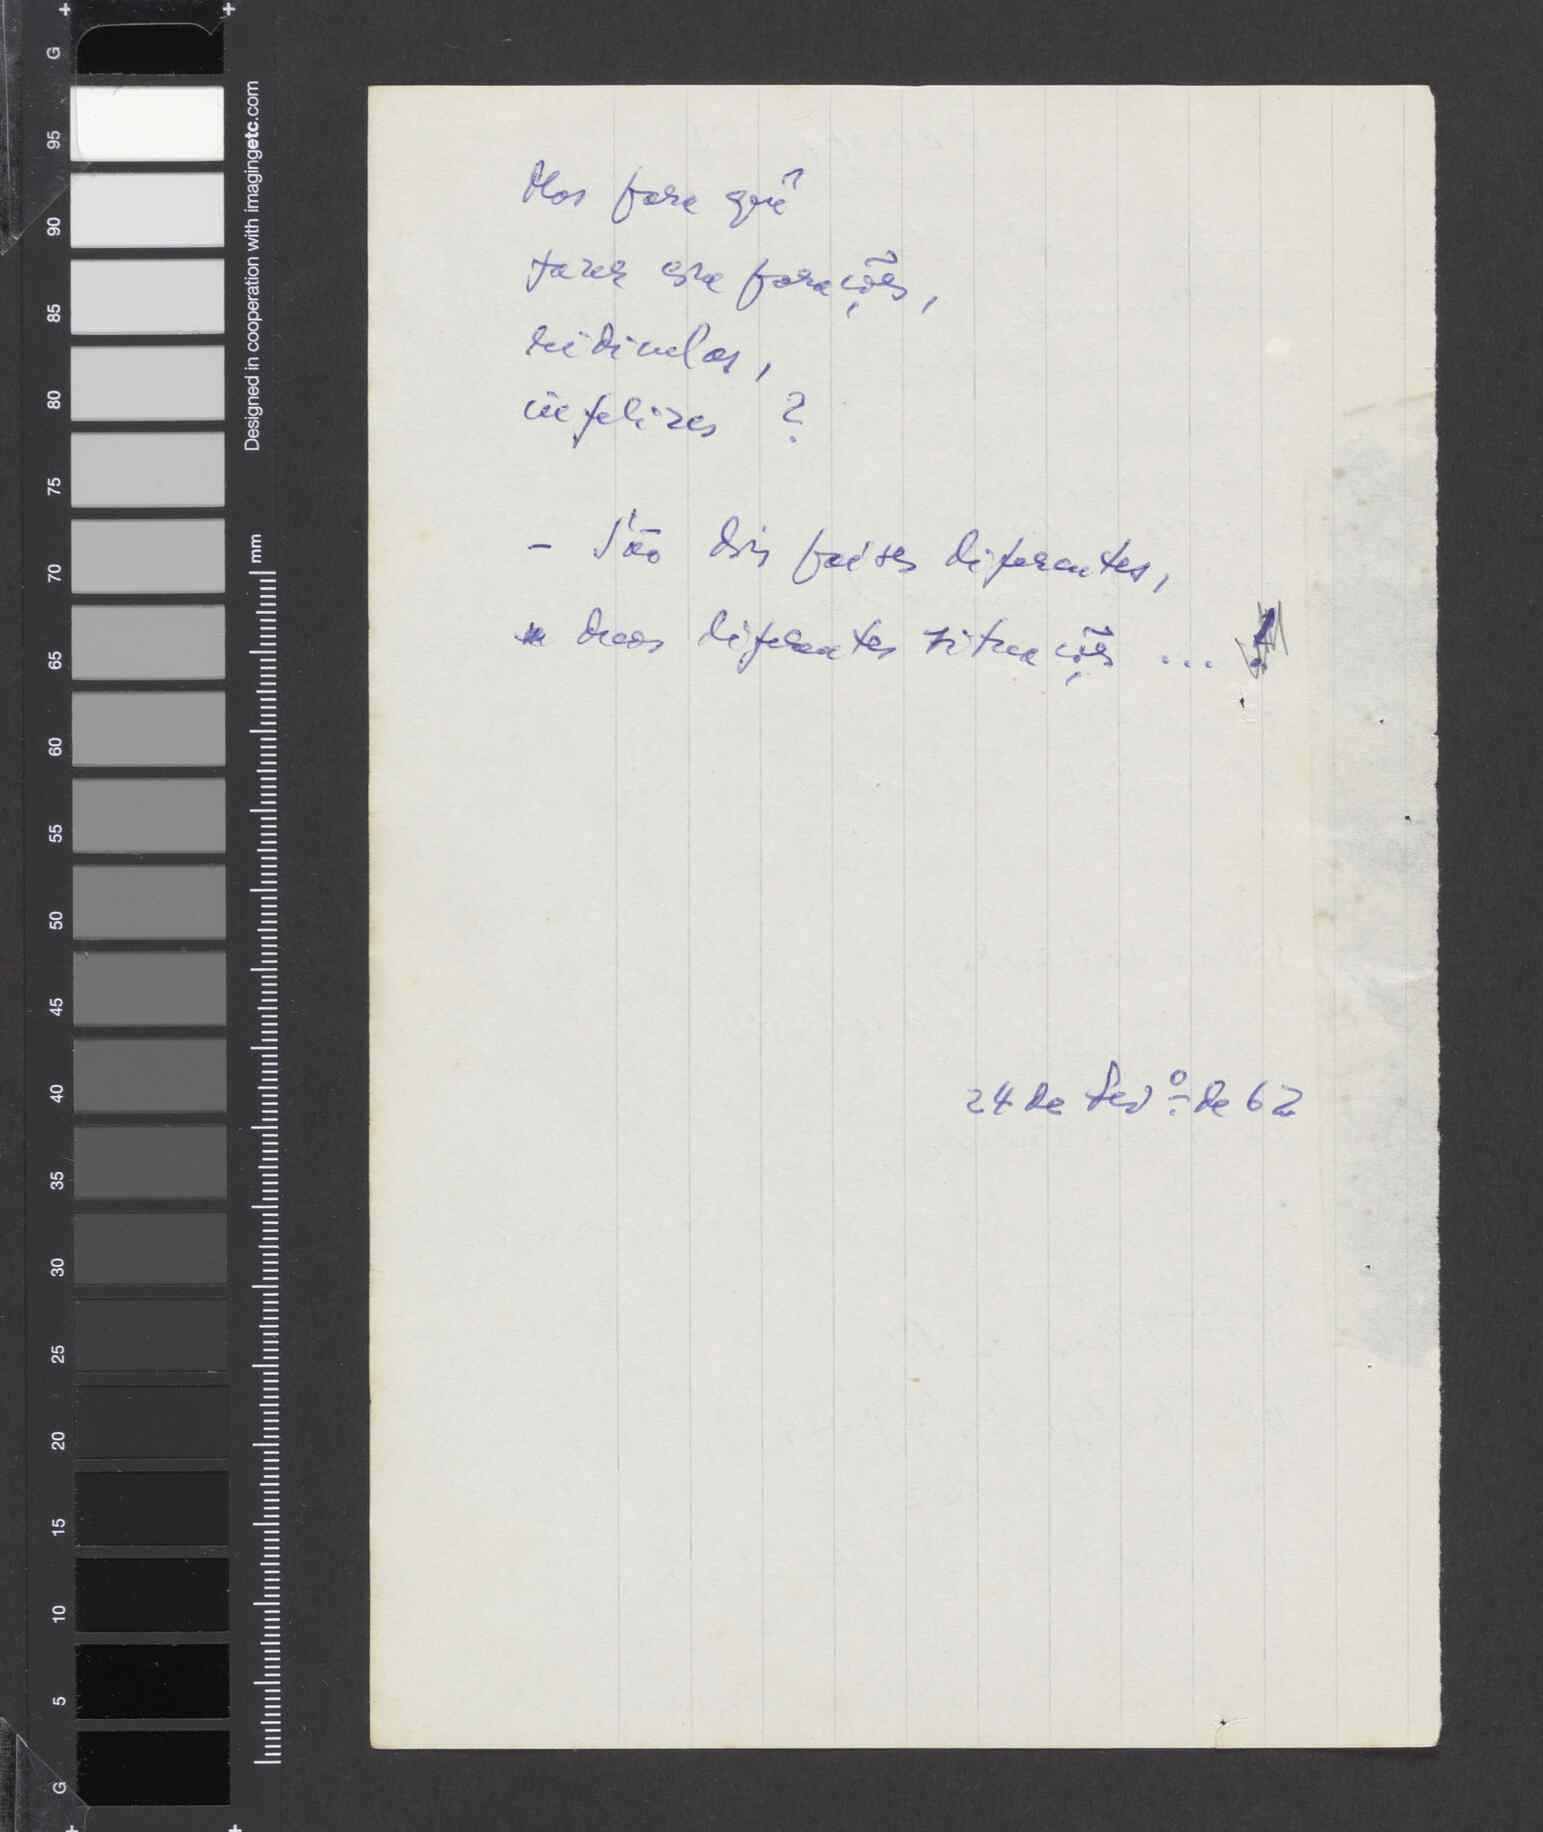 Mas para quê
fazer comparações,
ridículas,
infelizes ?
– São dois países diferentes,
duas diferentes situações ...
24 de Fev.º de 62
Designed in cooperation with imagingetc.com
mm
G
95
90
85
80
75
70
65
60
55
50
45
40
35
30
25
20
15
10
5
G